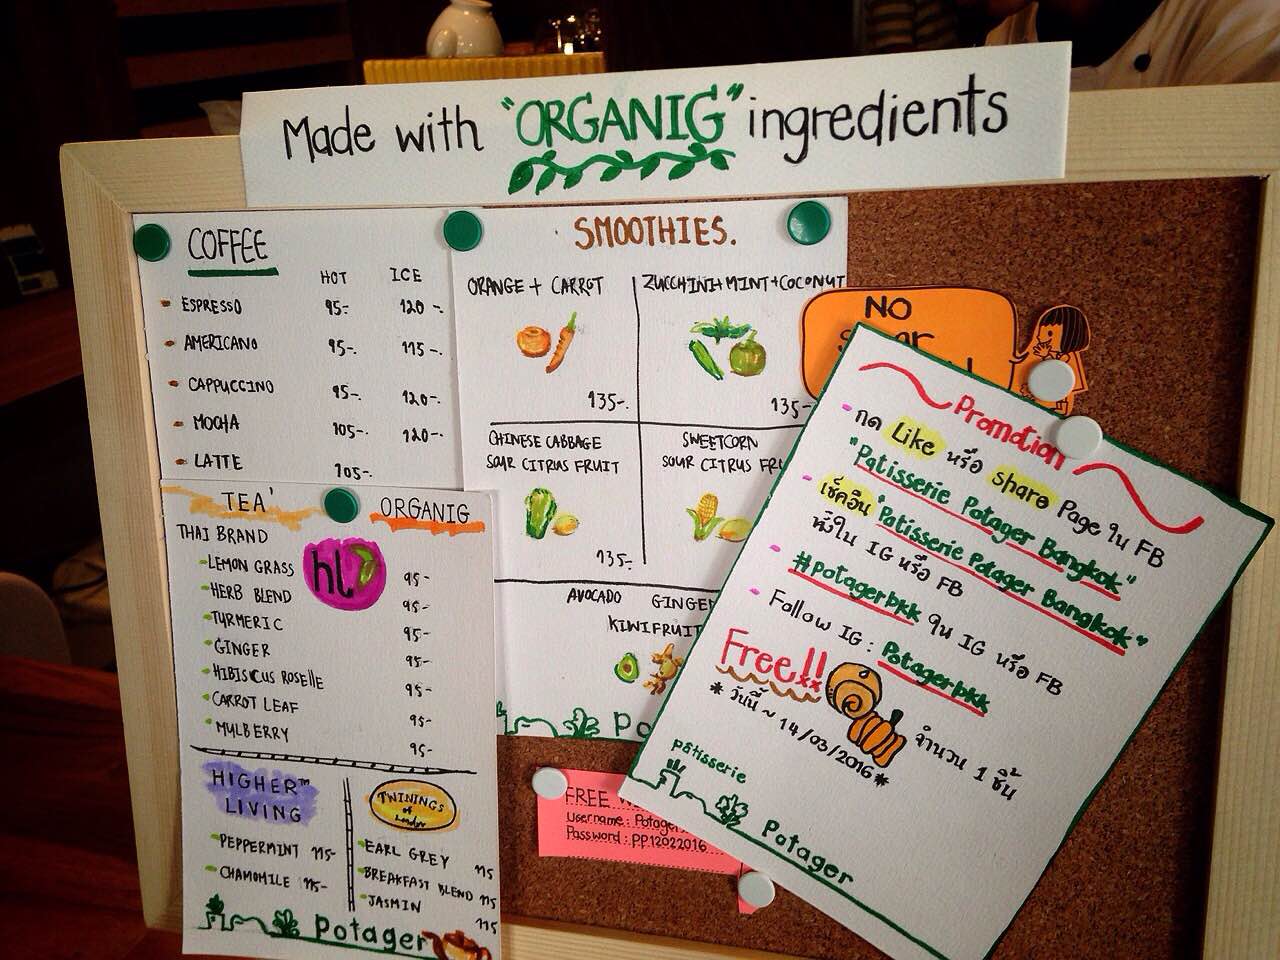 Made with "ORGANIG" ingredients
COFFEE
HOT ICE
ESPRESSO 95.- 120.-
AMERICANO 95.- 115.-
CAPPUCCINO 95.- 120.-
MOCHA 105.- 120.-
LATTE 105.-
TEA' ORGANIG
THAI BRAND
hl
LEMON GRASS 95-
HERB BLEND 95-
TURMERIC 95-
GINGER 95-
HIBISCUS ROSELLE 95-
CARROT LEAF 95-
MULBERRY 95-
HIGHER™
LIVING
PEPPERMINT 115-
CHAMOMILE 115-
TWININGS
of
London
EARL GREY 115
BREAKFAST BLEND 115
JASMIN 115
Potager
SMOOTHIES.
ORANGE + CARROT
135-.
ZUCCHINI+MINT+COCONUT
135-
CHINESE CABBAGE
SOUR CITRUS FRUIT
135-.
SWEETCORN
SOUR CITRUS
AVOCADO GINGER
KIWIFRUIT
NO
Promotion
- กด Like หรือ share Page ใน FB
"Patisserie Potager Bangkok"
- เช็คอิน "Patisserie Potager Bangkok"
ทั้งใน IG หรือ FB
- #potagerbkk ใน IG หรือ FB
- Follow IG : Potagerbkk
Free!! จำนวน 1 ชิ้น
* วันนี้ ~ 14/03/2016 *
pâtisserie
Potager
FREE
Username :
Password : PP12022016